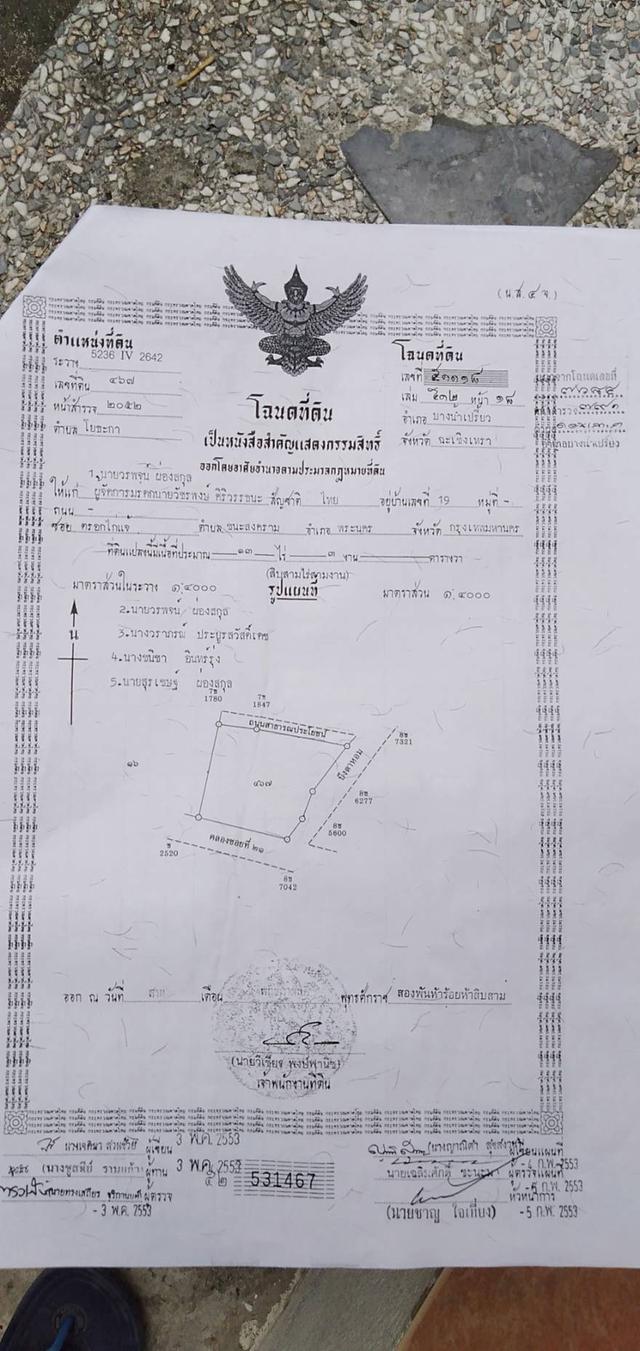 (น.ส.๔ จ.)
ตำแหน่งที่ดิน
ระวาง 5236 IV 2642
เลขที่ดิน ๔๖๗
หน้าสำรวจ ๒๐๕๒
ตำบล โยธะกา
โฉนดที่ดิน
เลขที่ ๕๓๓๑๘
เล่ม ๕๓๒ หน้า ๑๘
อำเภอ บางน้ำเปรี้ยว
จังหวัด ฉะเชิงเทรา
โฉนดที่ดิน
เป็นหนังสือสำคัญแสดงกรรมสิทธิ์
ออกโดยอาศัยอำนาจตามประมวลกฎหมายที่ดิน
1.นายวรพจน์ ผ่องสกุล
ให้แก่ ผู้จัดการมรดกนายวัชรพงษ์ ศิริวรรธนะ สัญชาติ ไทย อยู่บ้านเลขที่ 19 หมู่ที่ -
ถนน -
ซอย ตรอกไก่แจ้ ตำบล ชนะสงคราม อำเภอ พระนคร จังหวัด กรุงเทพมหานคร
ที่ดินแปลงนี้มีเนื้อที่ประมาณ ๑๓ ไร่ ๓ งาน ตารางวา
(สิบสามไร่สามงาน)
มาตราส่วนในระวาง ๑:๔๐๐๐ รูปแผนที่ มาตราส่วน ๑:๔๐๐๐
น
2.นายวรพจน์ ผ่องสกุล
3.นางวราภรณ์ ประยูรสวัสดิ์เดช
4.นางชนิชา อินทร์รุ่ง
5.นายสุรเชษฐ์ ผ่องสกุล
7ช 1780
7ช 1847
ถนนสาธารณประโยชน์
8ช 7321
๑๖
๔๖๗
บึงตาหอม
8ช 6277
8ช 5600
คลองซอยที่ ๒๑
ช 2520
8ช 7042
ออก ณ วันที่ สาม เดือน พุทธศักราช สองพันห้าร้อยห้าสิบสาม
(นายวิเชียร พงษ์พานิช)
เจ้าพนักงานที่ดิน
ผู้เขียน 3 พ.ค. 2553
ผู้ทาน 3 พ.ค. 2553
ผู้ตรวจ
- 3 พ.ค. 2553
๔๒ 531467
ผู้เขียนแผนที่
- 4 ก.พ. 2553
ผู้ตรวจแผนที่
- 5 ก.พ. 2553
หัวหน้าการ
(นายชาญ ใจเที่ยง) - 5 ก.พ. 2553